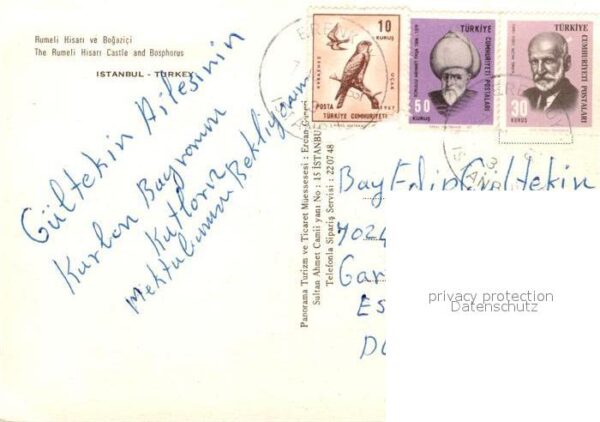 Rumeli Hisarı ve Boğaziçi
The Rumeli Hisarı Castle and Bosphorus
ISTANBUL - TURKEY
Gültekin Ailesinin
Kurban Bayramını
Kutlarız
Mektubunuzu Bekliyorum
Panorama Turizm ve Ticaret Müessesesi : Ercan
Sultan Ahmet Camii yanı No : 15 İSTANBUL
Telefonla Sipariş Servisi : 220748
10
KURUŞ
UÇAK
POSTA 1967
TÜRKİYE CUMHURİYETİ
TÜRKİYE
CUMHURİYETİ POSTALARI
50
KURUŞ
TÜRKİYE
CUMHURİYETİ POSTALARI
30
KURUŞ
Bay Edip Gültekin
7024
Gar
Es
privacy protection
Datenschutz